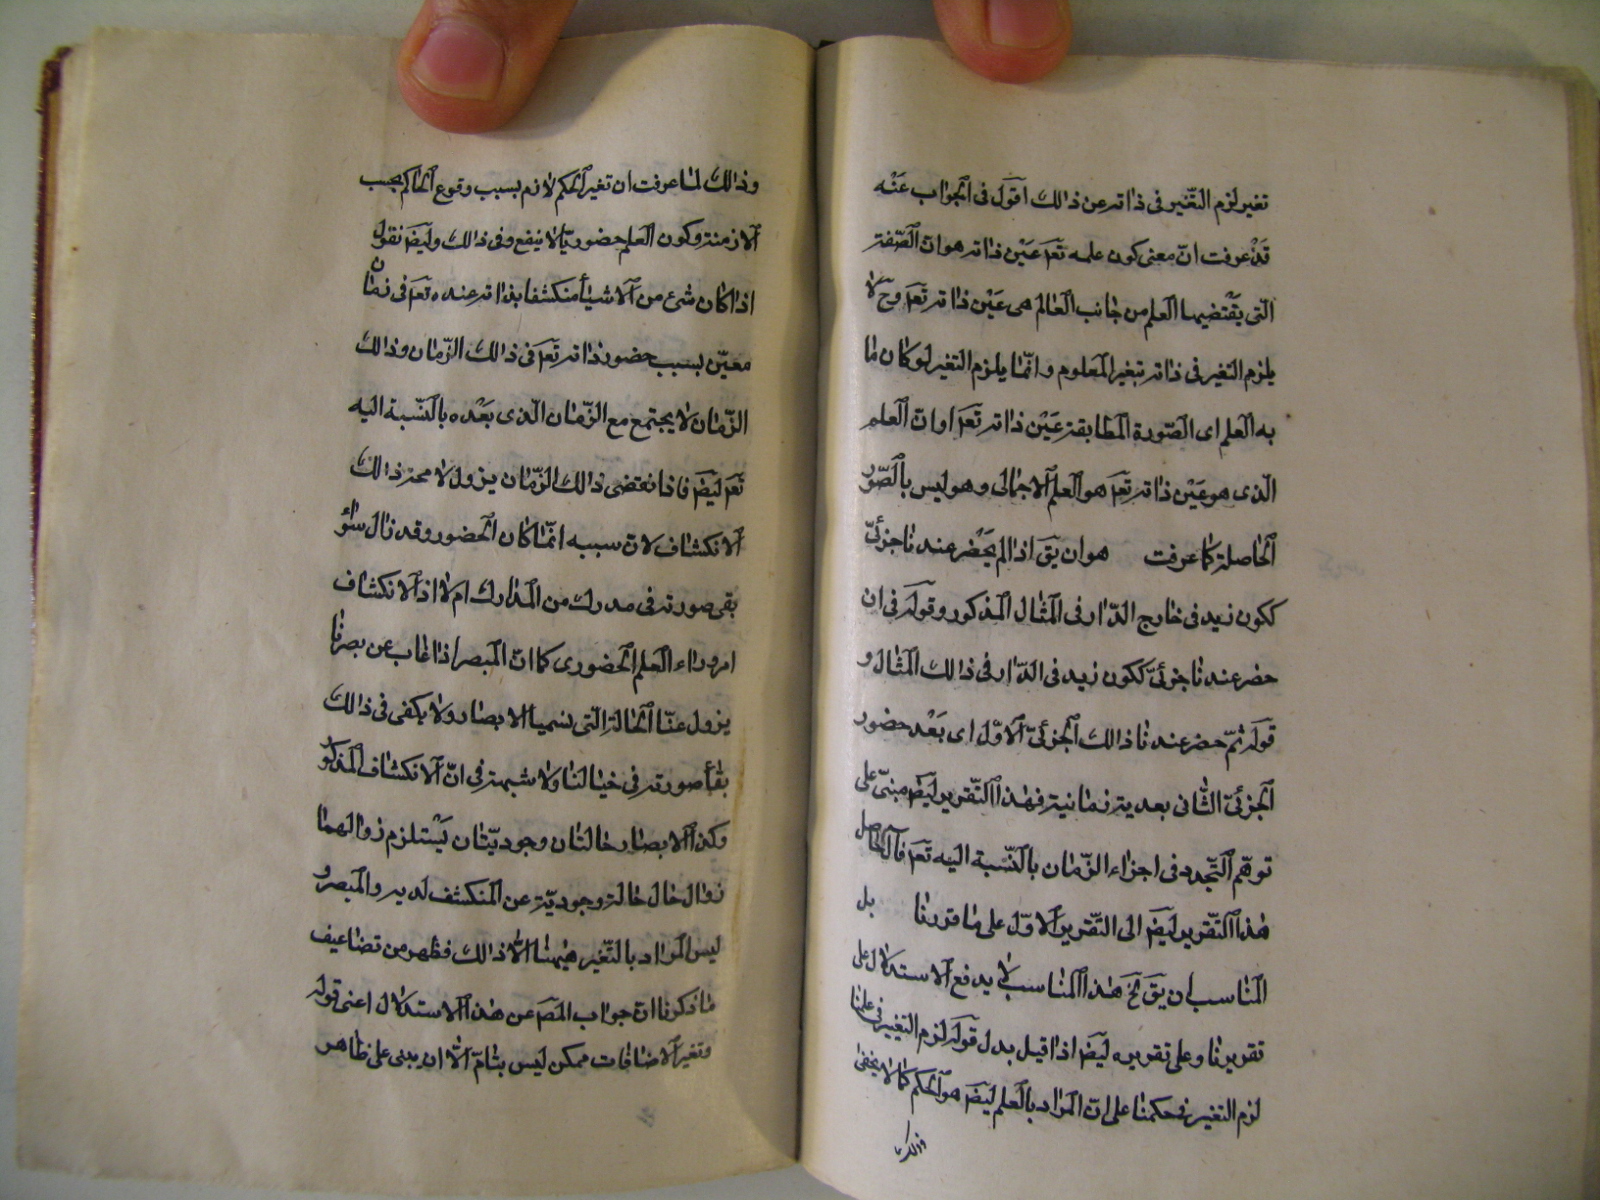 تغير لزم التغير فى ذاته عن ذالك اقول فى الجواب عنه
قد عرفت انّ معنى كون علمه تعٓ عين ذاته هو انّ الصّفة
الّتى يقتضيها العلم من جانب العالم هى عين ذاته تعٓ وحٓ لا
يلزم التغير فى ذاته بتغير المعلوم وانّما يلزم التغير لو كان ما
به العلم اى الصّورة المطابقة عين ذاته تعٓ او انّ العلم
الّذى هو عين ذاته تعٓ هو العلم الاجمالى وهو ليس بالصّور
الحاصلة كما عرفت هو ان يقٓ اذا لم يحضر عندنا جزئىّ
ككون زيد فى خارج الدّار فى المثال المذكور وقوله فى ان
حضر عندنا جزئىّ ككون زيد فى الدّار فى ذالك المثال و
قوله ثمّ حضر عندنا ذالك الجزئىّ الاوّل اى بعد حضور
الجزئىّ الثّانى بعدية زمانية فهذا التّقرير ايضٓ مبنىّ على
توهّم التّجدد فى اجزاء الزّمان بالنّسبة اليه تعٓ فالحاصل
هذا التّقرير ايضٓ الى التّقرير الاوّل على ما قررنا بل
المناسب ان يقٓ هذا المناسب لا يدفع الاستدلال على
تقريرنا وعلى تقريره ايضٓ اذا قيل بدل قوله لزم التغيير فى علمنا
لزم التغير فى حكمنا على انّ المراد بالعلم ايضٓ هو الحكم كما لا يخفى
وذالك
وذالك لما عرفت ان تغير الحكم لازم بسبب وقوع الحاكم بحسب
الازمنة وكون العلم حضوريّا لا ينفع فى ذالك وايضٓ نقول
اذا كان شئ من الاشيأ منكشفا بذاته عنده تعٓ فى زمان
معيّن بسبب حضور ذاته تعٓ فى ذالك الزّمان وذالك
الزّمان لا يجتمع مع الزّمان الّذى بعده بالنّسبة اليه
تعٓ ايضٓ فاذا نقضى ذالك الزّمان يزول لا محة ذالك
الانكشاف لانّ سببه انّما كان الحضور وقد زال سوأ
بقى صورته فى مدرك من المدارك ام لا اذ الانكشاف
امر وراء العلم الحضورى كما انّ المبصر اذا غاب عن بصرنا
يزول عنّا الحالة الّتى نسميها الابصار ولا يكفى فى ذالك
بقأ صورته فى خيالنا ولا شبهة فى انّ الانكشاف المذكور
وكذا الابصار حالتان وجوديّتان يستلزم زوالهما
زوال حال حالة وجوديّة عن المنكشف لديه والمبصر و
ليس المراد بالتّغير ههنا الّا ذالك فظهر من تضاعيف
ما ذكرنا انّ جواب المصٓ عن هذا الاستدلال اعنى قوله
وتغير الاضافات ممكن ليس بتامّ الّا ان يبنى على ظاهر